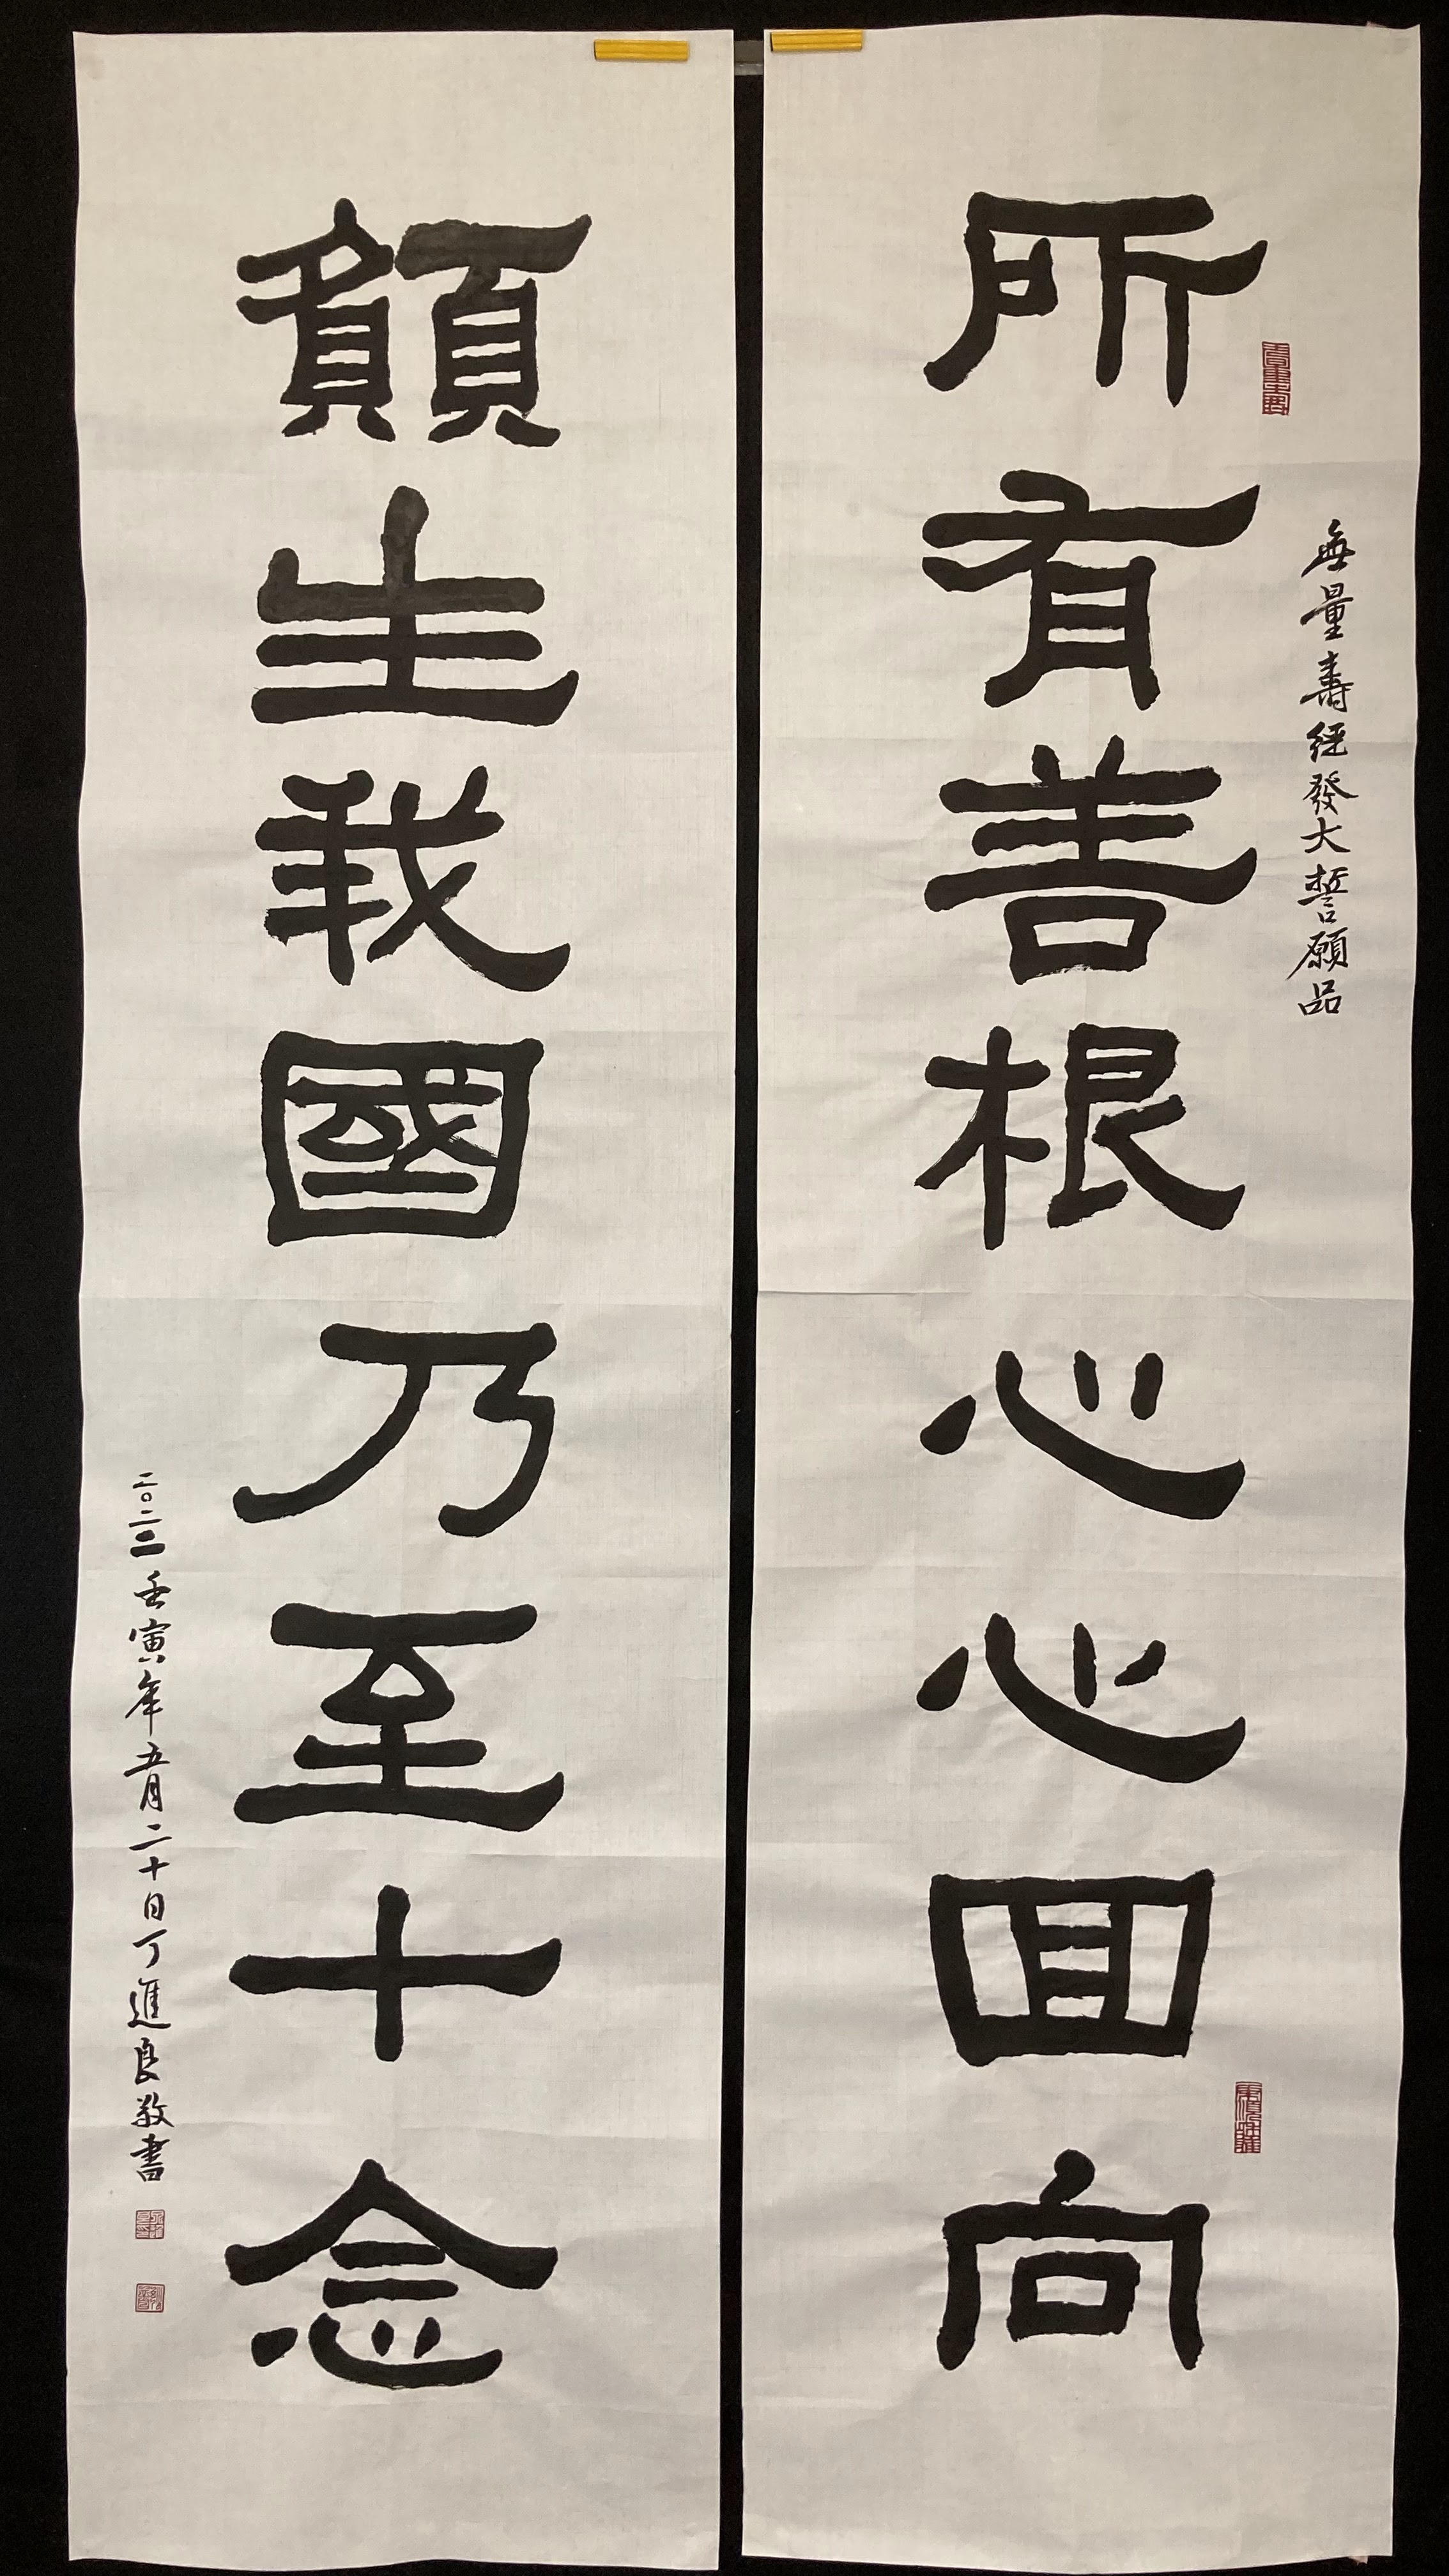 無量壽經發大誓願品
所有善根心心回向
願生我國乃至十念
二〇二二壬寅年五月二十日丁進良敬書